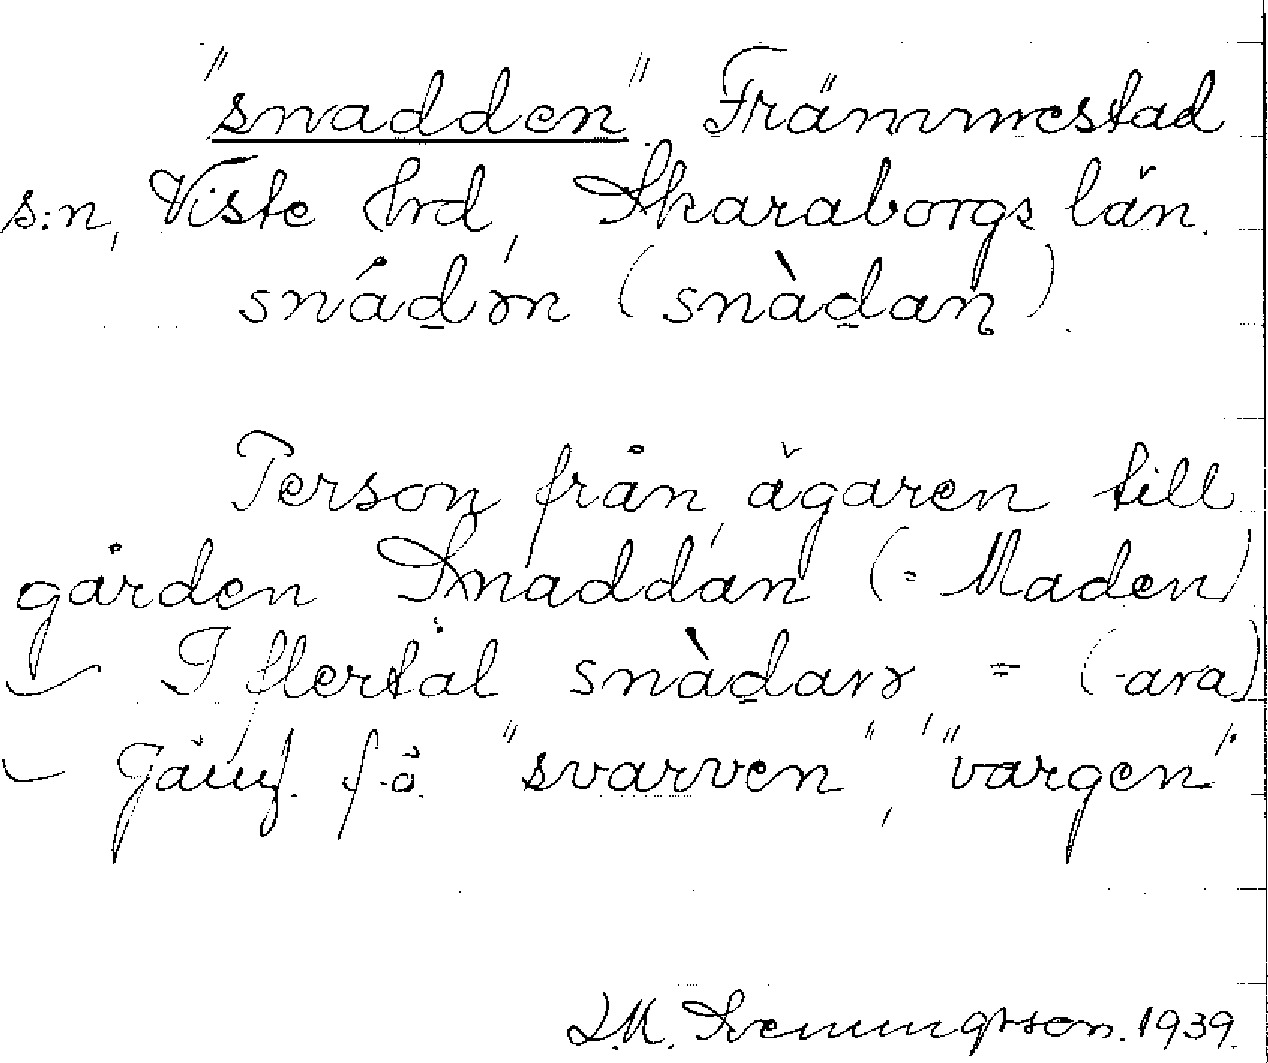 "snadden" Främmestad
s:n, Viste hrd, Skaraborgs län.
snádɤn (snàdan)
Person från, ägaren till
gården Snaddan (= Maden)
I flertal snàdarɤ = (-ara)
Jämf. f.ö. "svarven", "vargen"
L.M. Svenungsson. 1939.